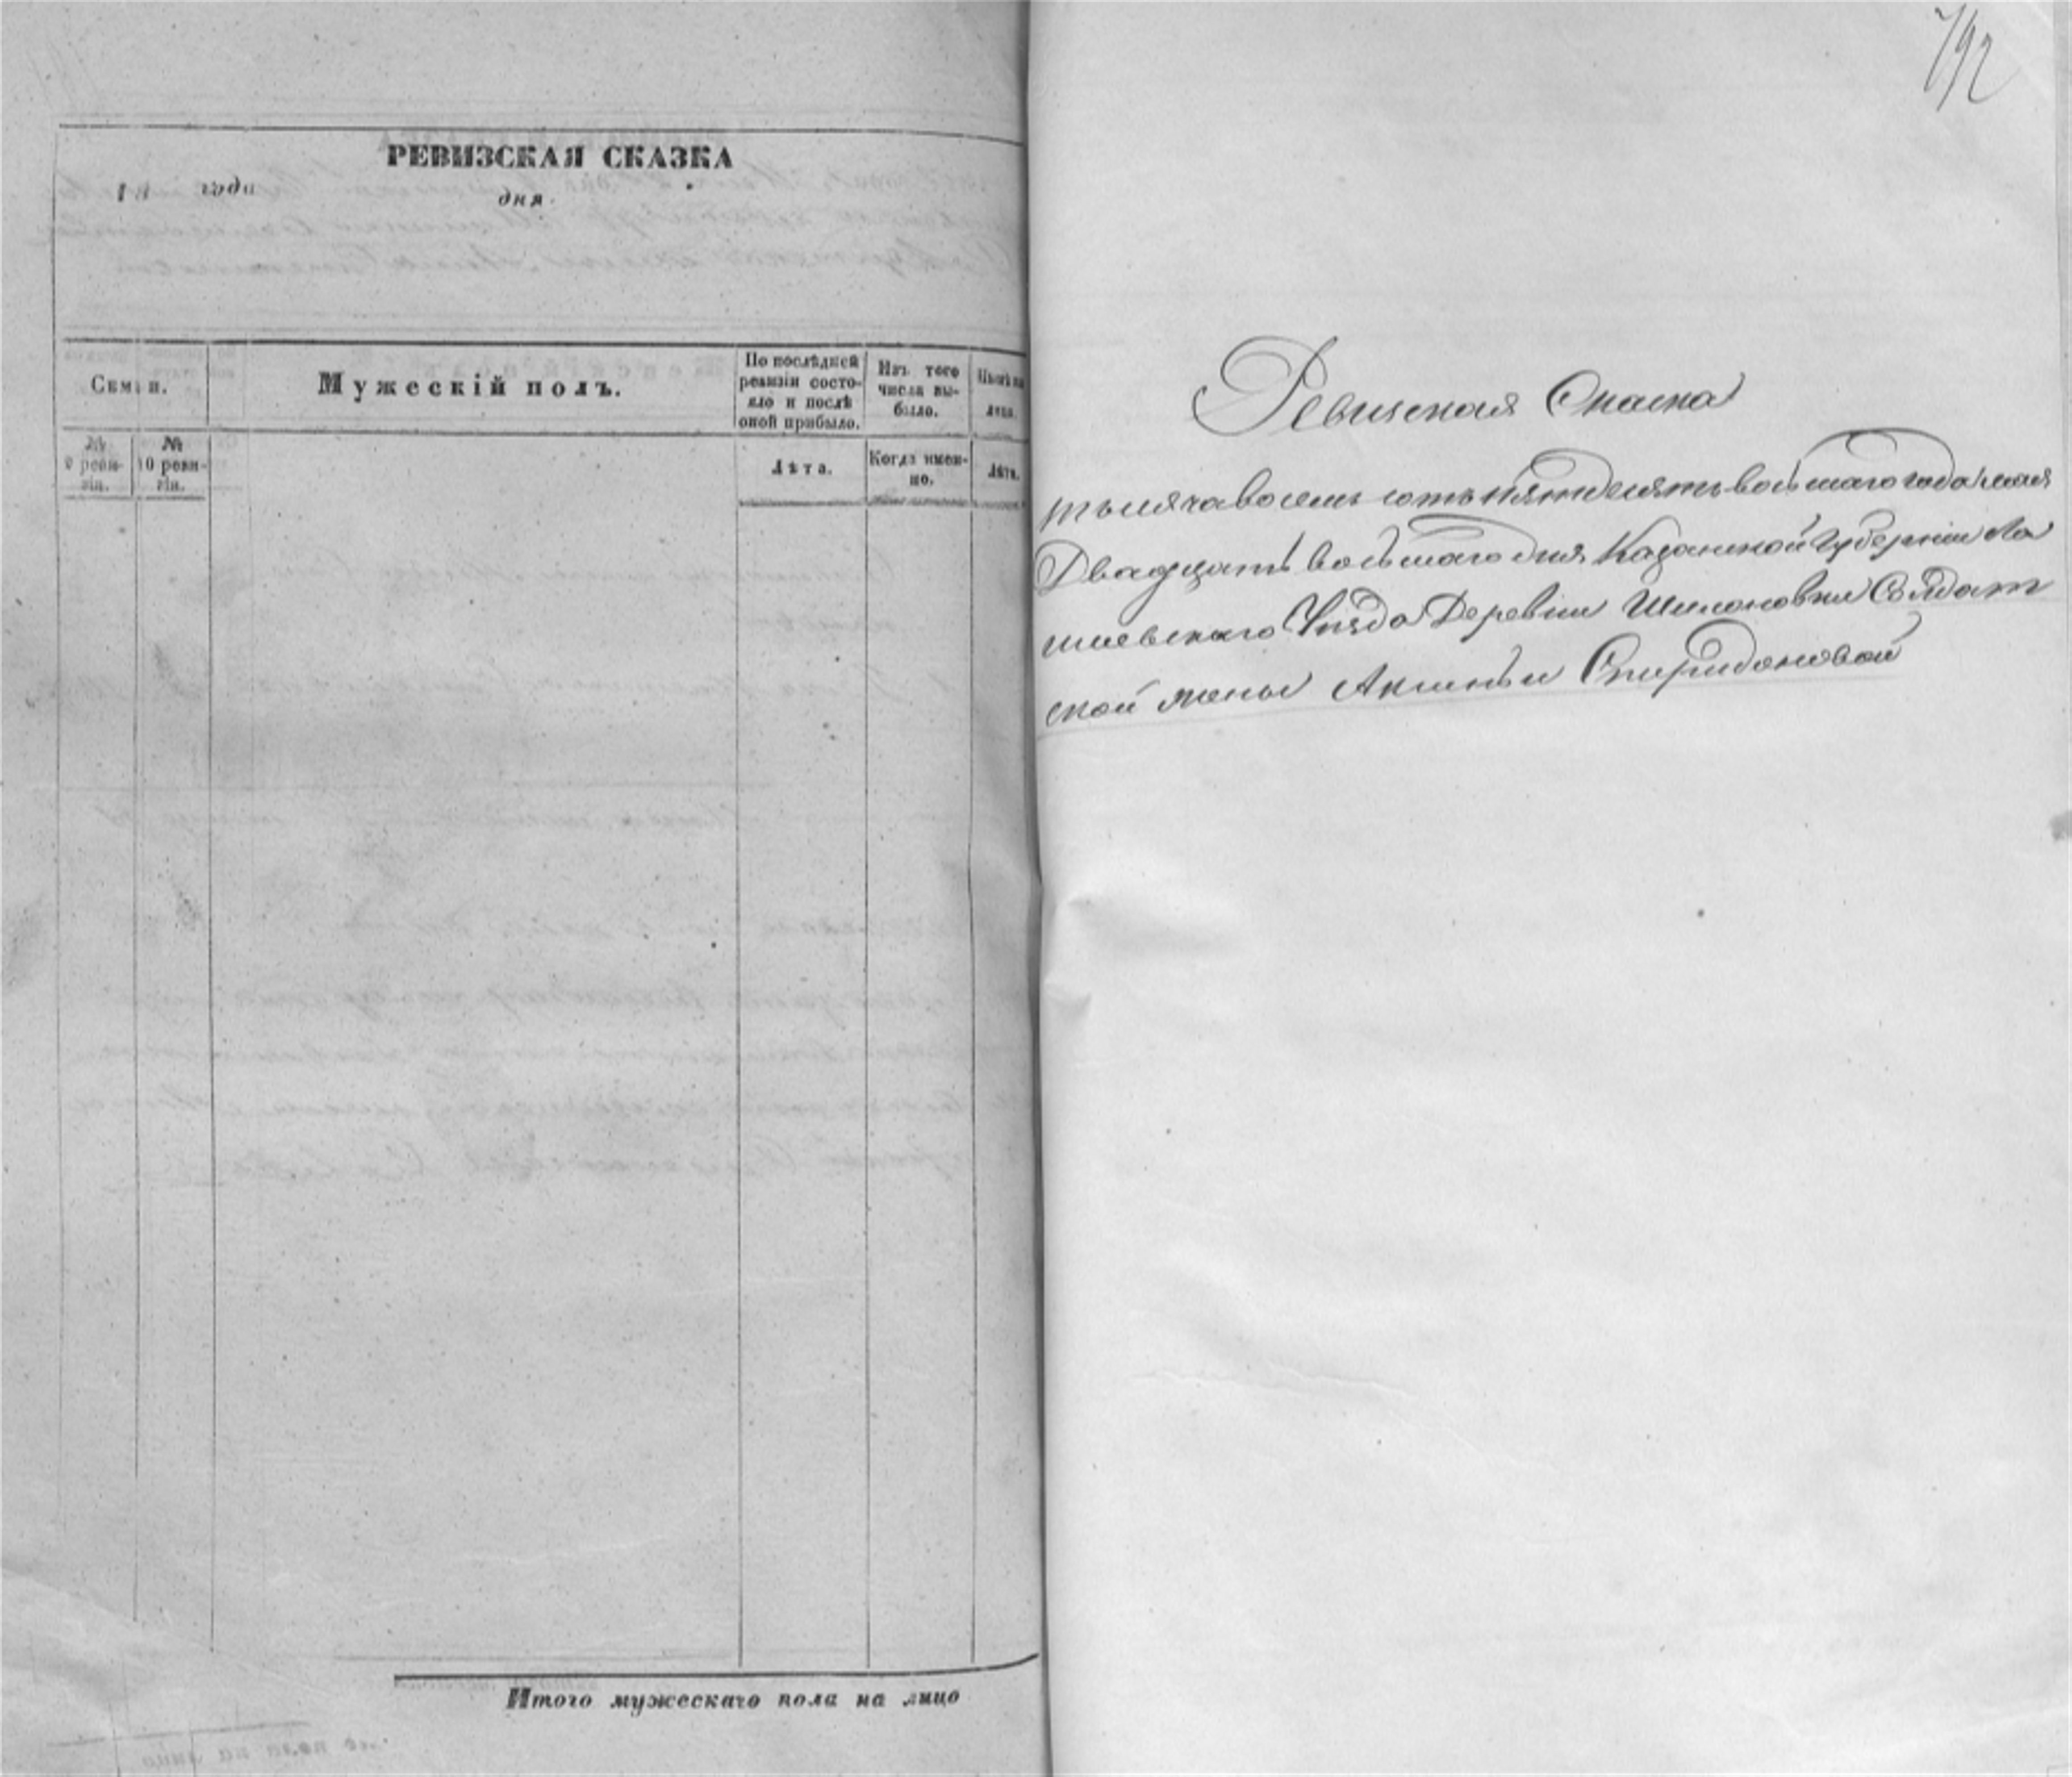 РЕВИЗСКАЯ СКАЗКА
18 года
дня
Семьи.
Мужескій полъ.
По послѣдней
ревизіи состо-
яло и послѣ
оной прибыло.
Изъ того
числа вы-
было.
лицо.
№
9 реви-
зіи.
№
10 реви-
зіи.
Лѣта.
Когда имен-
но.
Лѣта.
Итого мужескаго пола на лицо
792
Ревизская Сказка
тысяча восемь сотъ пятдесятъ восьмаго года мая
Двадцать восьмаго дня Казанской Губерніи Ла
ишевскаго Уѣзда Деревни Шилановки Солдат
ской жены Аксиньи Спиридоновой